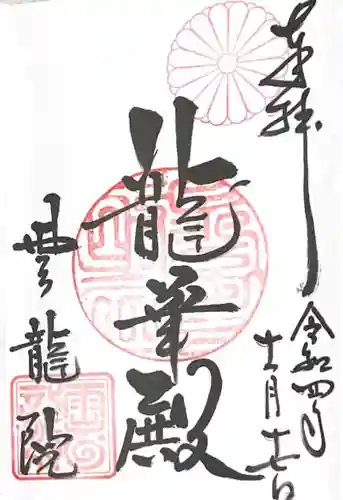 奉拝
令和四年
十一月十七日
龍華殿
雲龍院